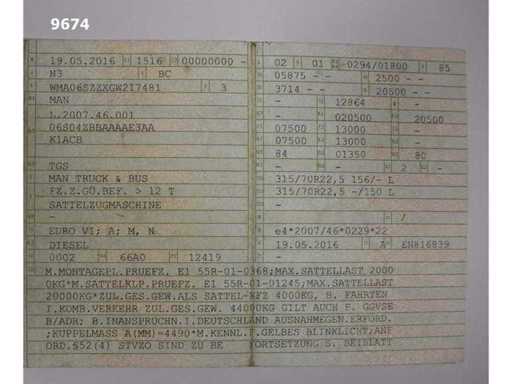 9674
19.05.2016 1516 00000000 -
N3 BC
WMA06SZZXGW217481 3
MAN
L.2007.46.001
06S04ZBBAAAAE3AA
K1ACB
TGS
MAN TRUCK & BUS
FZ.Z.GÜ.BEF. > 12 T
SATTELZUGMASCHINE
-
EURO VI; A; M, N
DIESEL
0002 66A0 12419
02 01 -0294/01800 85
05875 - - 2500 - -
3714 - - 20500 - -
- 12864 -
- 020500 20500
07500 13000 -
07500 13000 -
84 01350 80
- - - 2 -
315/70R22,5 156/- L
315/70R22,5 -/150 L
-
- /
e4*2007/46*0229*22
19.05.2016 A EN816839
-
M.MONTAGEPL.PRUEFZ. E1 55R-01-0368;MAX.SATTELLAST 2000
0KG*M.SATTELKLP.PRUEFZ. E1 55R-01-01245;MAX.SATTELLAST
20000KG*ZUL.GES.GEW.ALS SATTEL-KFZ 4000KG, B. FAHRTEN
I.KOMB.VERKEHR ZUL.GES.GEW. 44000KG GILT AUCH F. GGVSE
B/ADR; B.INANSPRUCHN.I.DEUTSCHLAND AUSNAHMEGEN.ERFORD.
;KUPPELMASS A(MM)=4490*M.KENNL.F.GELBES BLINKLICHT;ANF
ORD.§52(4) STVZO SIND ZU BE FORTSETZUNG S. BEIBLATT